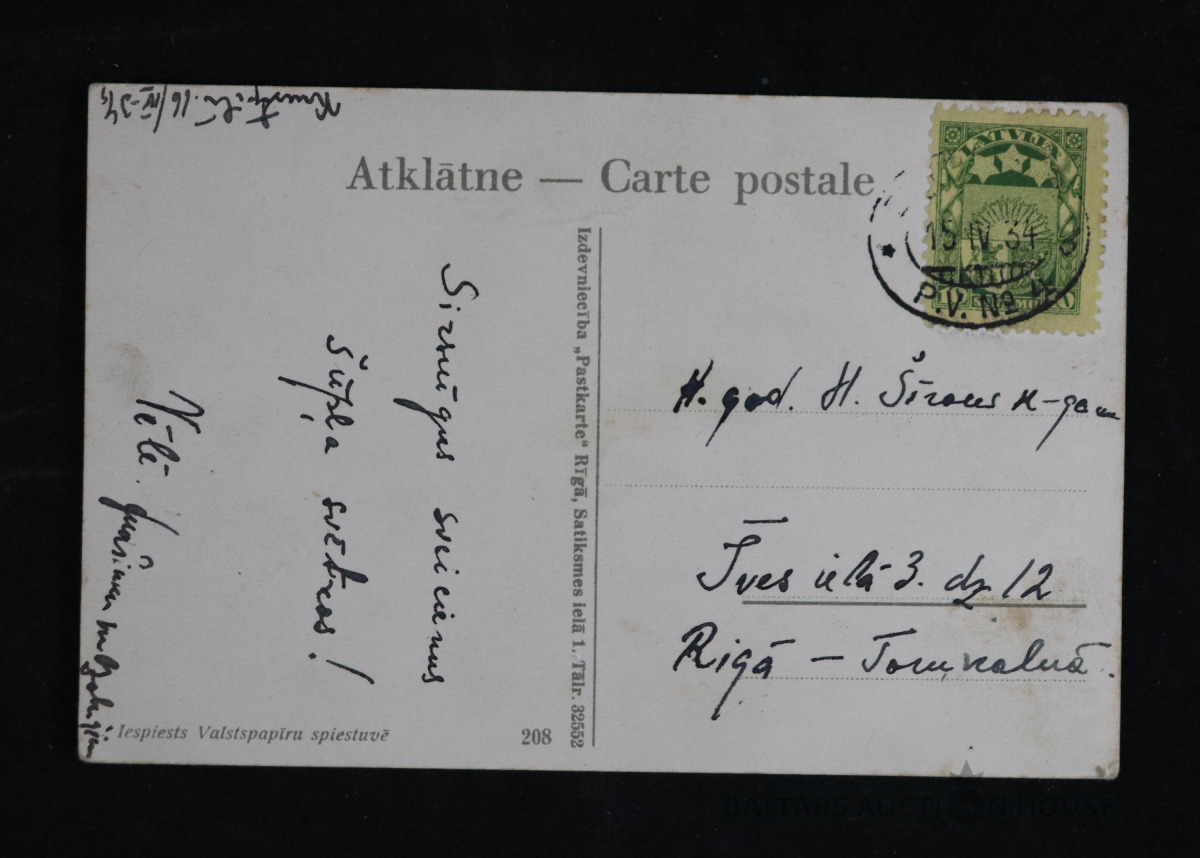 Krustpilī. 16/IV-34
Atklātne — Carte postale
LATVIJA
15 IV 34
P.V. No
Sirsnīgus sveicienus
Šūpļa svētkos!
Vēlē.
Izdevniecība „Pastkarte“ Rīgā, Satiksmes ielā 1. Tālr. 32552
H. god. H. Šīrons k-gam
Īves ielā 3. dz 12
Rīgā — Torņkalnā.
Iespiests Valstspapīru spiestuvē
208
BALTARS AUCTION HOUSE